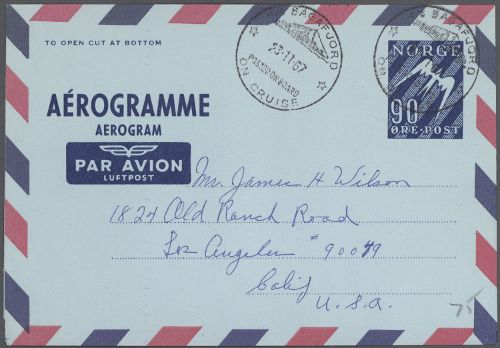 TO OPEN CUT AT BOTTOM
SAGAFJORD
23·11·67
POSTED ON BOARD
ON CRUISE
SAGAFJORD
ON
NORGE
90
ØRE·POST
AÉROGRAMME
AEROGRAM
PAR AVION
LUFTPOST
Mr. James H Wilson
1824 Old Ranch Road
Los Angeles # 90049
Calif
U.S.A.
75